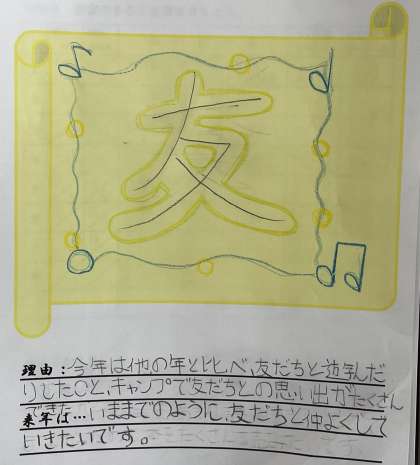 友
理由：今年は他の年と比べ、友だちと遊んだ
りしたことと、キャンプで友だちとの思い出がたくさん
できた
来年は…いままでのように、友だちと仲よくして
いきたいです。